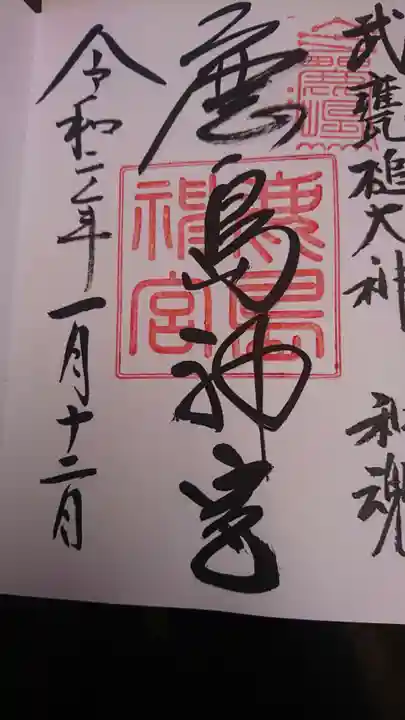 武甕槌大神 和魂
鹿島神宮
鹿島神宮
令和二年一月十二月